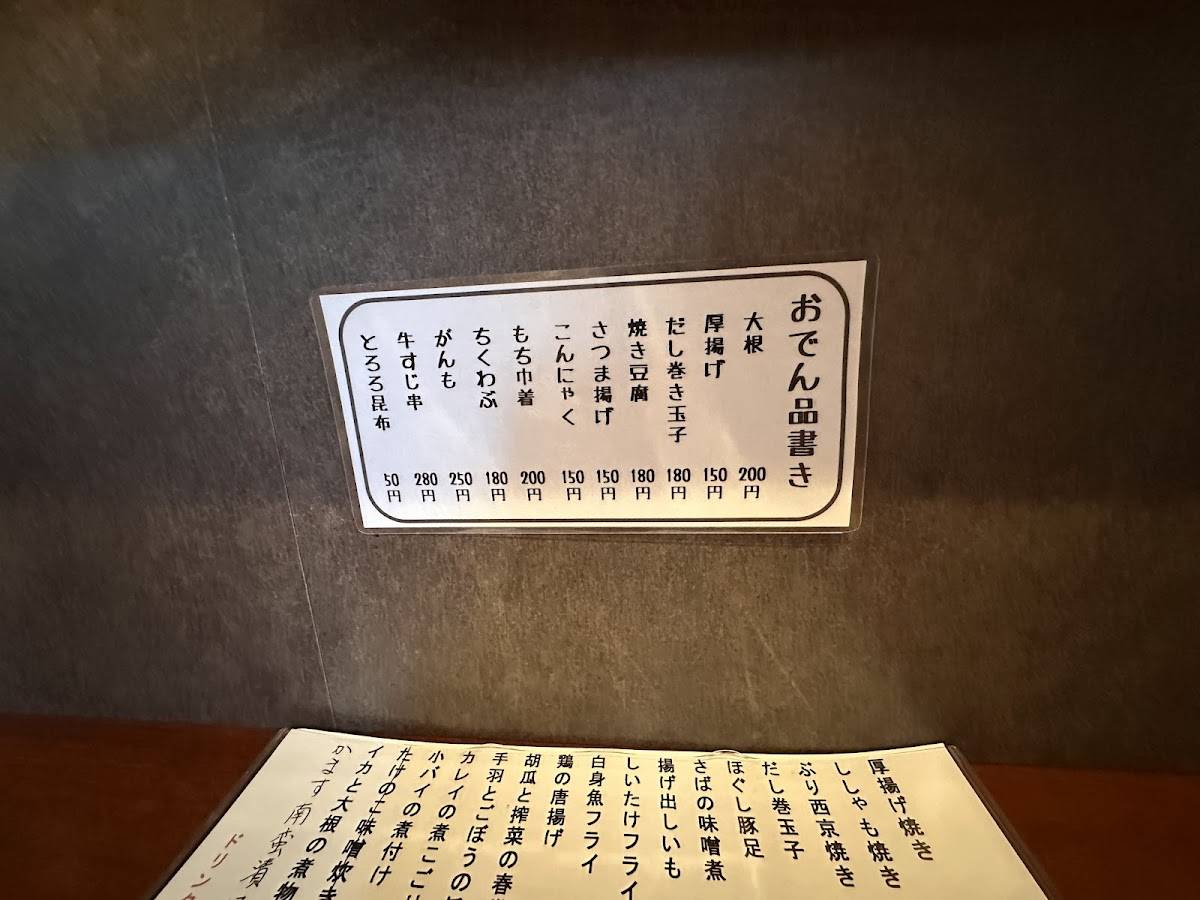 おでん品書き
大根 200円
厚揚げ 150円
だし巻き玉子 180円
焼き豆腐 180円
さつま揚げ 150円
こんにゃく 150円
もち巾着 200円
ちくわぶ 180円
がんも 250円
牛すじ串 280円
とろろ昆布 50円
厚揚げ焼き
ししゃも焼き
ぶり西京焼き
だし巻玉子
ほぐし豚足
さばの味噌煮
揚げ出しいも
しいたけフライ
白身魚フライ
鶏の唐揚げ
胡瓜と搾菜の春
手羽とごぼうの
カレイの煮こご
小バイの煮付け
たけのこ味噌炊き
イカと大根の煮物
かます南蛮漬
ドリンク